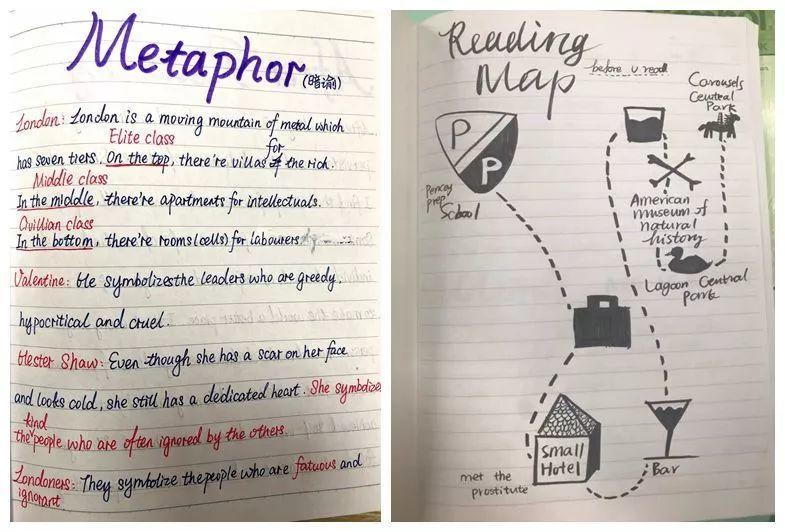 Metaphor (暗喻)
London: London is a moving mountain of metal which
Elite class
has seven tiers. On the top, there're villas for the rich.
Middle class
In the middle, there're apartments for intellectuals.
Civillian class
In the bottom, there're rooms (cells) for labourers
Valentine: He symbolizes the leaders who are greedy,
hypocritical and cruel.
Hester Shaw: Even though she has a scar on her face
and looks cold, she still has a dedicated heart. She symbolizes
the kind people who are often ignored by the others.
Londoners: They symbolize the people who are fatuous and
ignorant
Reading
Map
before u read
Carousels
Central
Park
P
P
Pencey
prep
School
American
museum of
natural
history
Lagoon Central
Park
Small
Hotel
met the
prostitute
Bar